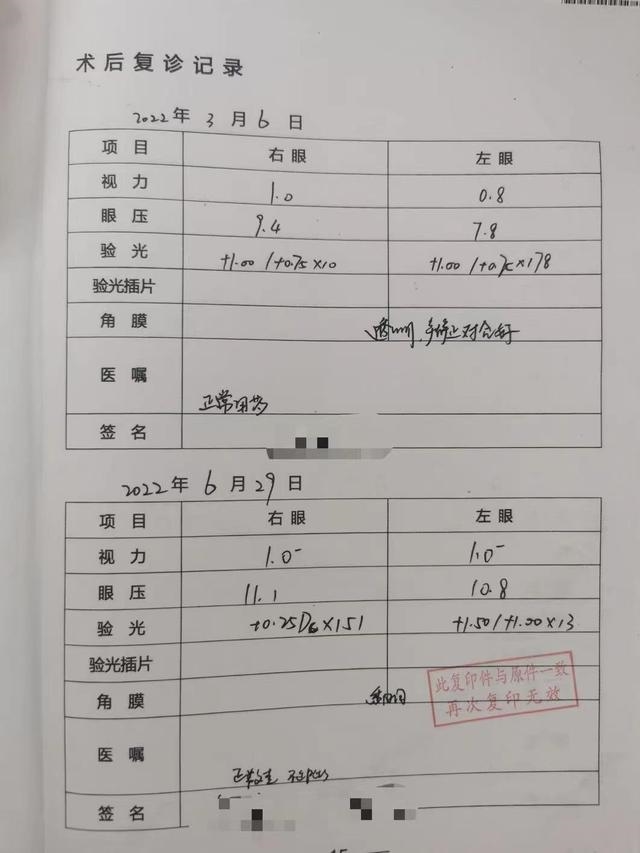 术后复诊记录
2022年 3 月 6 日
项目 右眼 左眼
视力 1.0 0.8
眼压 9.4 7.8
验光 +1.00/+0.75×10 +1.00/+0.75×178
验光插片
角膜 透明, 对合好
医嘱
正常用药
签名
2022年 6 月 29 日
项目 右眼 左眼
视力 1.0⁻ 1.0⁻
眼压 11.1 10.8
验光 +0.25Dc×151 +1.50/+1.00×13
验光插片
此复印件与原件一致
再次复印无效
角膜 透明
医嘱
签名
15